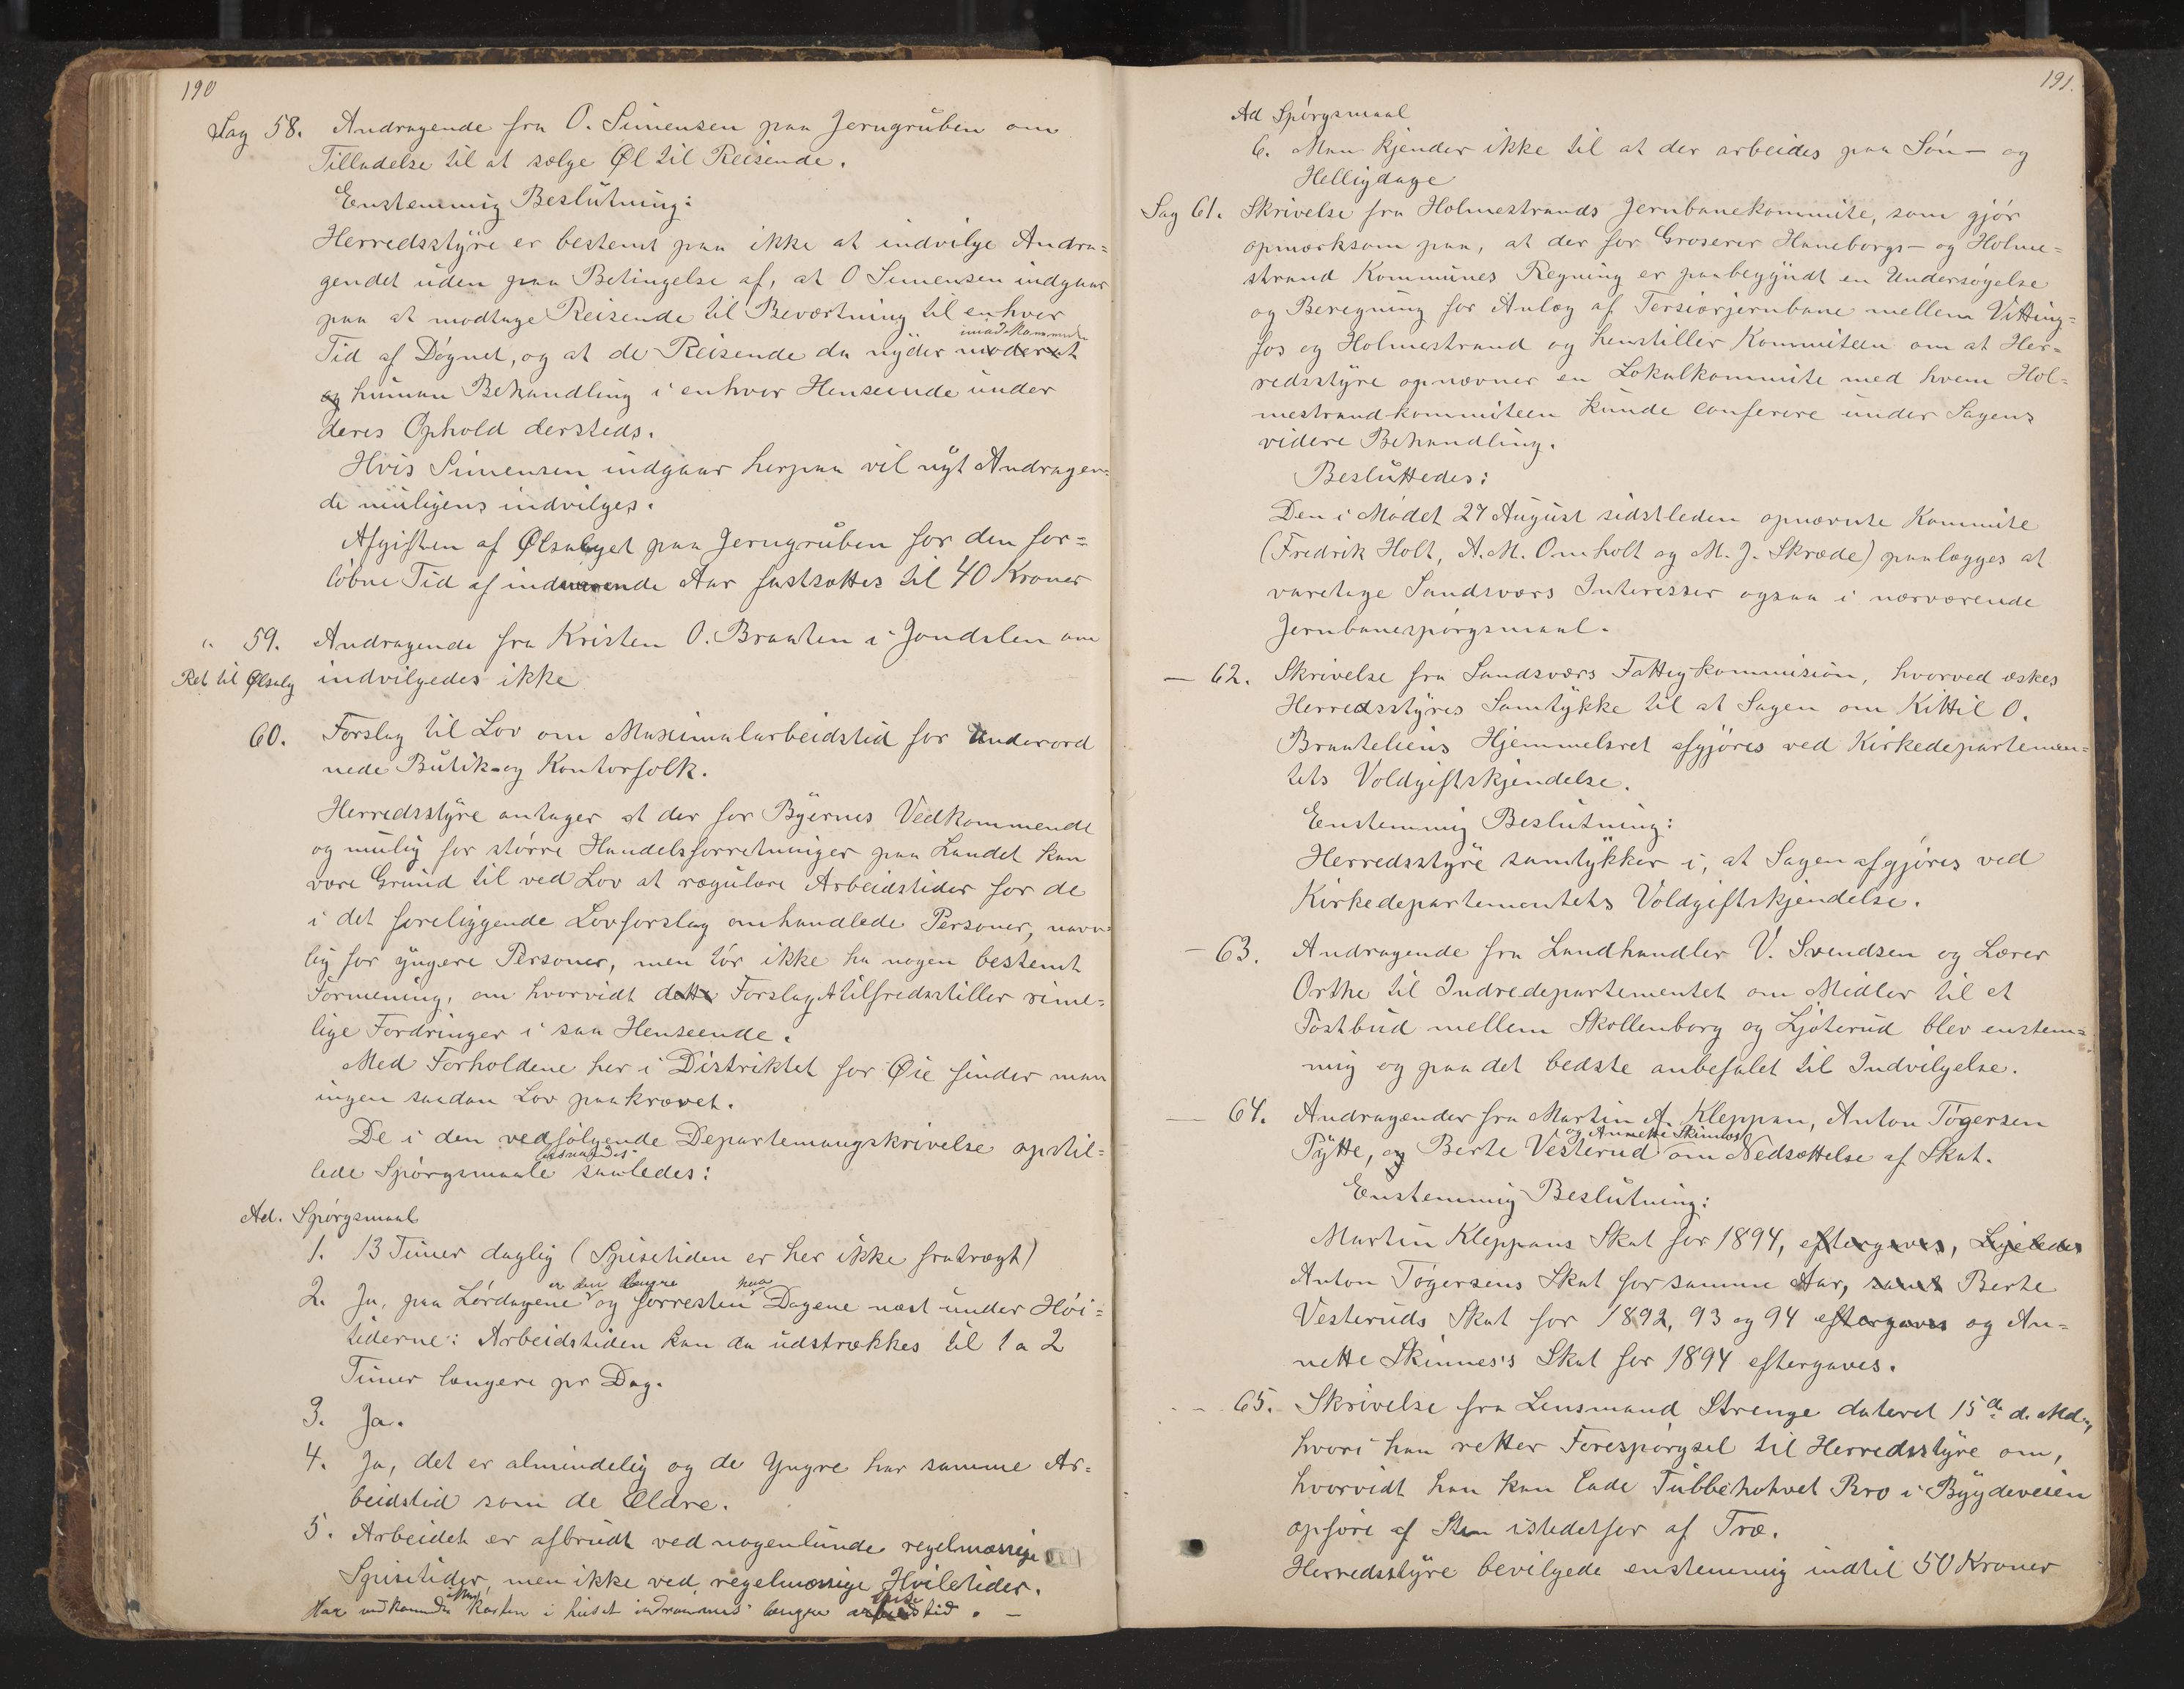 190
Sag 58. Andragende fra O. Simensen paa Jerngruben om
Tilladelse til at sælge Øl til Reisende.
Enstemmig Beslutning:
Herredsstyre er bestemt paa ikke at indvilge Andra=
gendet uden paa Betingelse af, at O Simensen indgaar
paa at modtage Reisende til Beværtning til enhver
imødekommende
Tid af Døgnet, og at de Reisende da nyder moderat
og human Behandling i enhver Henseende under
deres Ophold dersteds.
Hvis Simensen indgaar herpaa vil nyt Andragen=
de muligens indvilges.
Afgiften af Ølsalget paa Jerngruben for den for=
løbne Tid af indeværende Aar fastsættes til 40 Kroner
" 59. Andragende fra Kristen O. Braaten i Jondalen om
Ret til Ølsalg indvilgedes ikke
60. Forslag til Lov om Maximalarbeidstid for Underord
nede Butik- og Kontorfolk.
Herredsstyre antager at der for Byernes Vedkommende
og mulig for større Handelsforretninger paa Landet kan
være Grund til ved Lov at regulere Arbeidstider for de
i det foreliggende Lovforslag omhandlede Personer, navn=
lig for yngere Personer, men tør ikke ha nogen bestemt
Formening, om hvorvidt dette Forslag tilfredsstiller rime=
lige Fordringer i saa Henseende.
Med Forholdene her i Distriktet for Øie finder man
ingen saadan Lov paakrævet.
De i den vedfølgende Departementsskrivelse opstil=
besvaredes
lede Spørgsmaale saaledes:
Ad. Spørgsmaal
1. 13 Timer daglig (Spisetiden er her ikke fratrægt)
er den længre paa
2. Ja, paa Lørdagene og forresten Dagene næst under Høi=
tiderne: Arbeidstiden kan da udstrækkes til 1 a 2
Timer længere pr Dag.
3. Ja.
4. Ja, det er almindelig og de Yngre har samme Ar=
beidstid som de Ældre.
5. Arbeidet er afbrudt ved nogenlunde regelmæssige
Spisetider, men ikke ved regelmæssige Hviletider.
Har vedkommende ikke Kosten i huset indrømmes længre spise arbeidstid. —
191.
Ad Spørgsmaal
6. Man kjender ikke til at der arbeides paa Søn- og
Helligdage
Sag 61. Skrivelse fra Holmestrands Jernbanekommite, som gjør
opmærksom paa, at der for Groserer Haneborgs- og Holme=
strand Kommunes Regning er paabegyndt en Undersøgelse
og Beregning for Anlæg af Tersiærjernbane mellem Vitting=
fos og Holmestrand og henstiller Kommiteen om at Her=
redsstyre opnævner en Lokalkommite med hvem Hol=
mestrandkommiteen kunde conferere under Sagens
videre Behandling.
Besluttedes:
Den i Mødet 27 August sidstleden opnævnte Kommite
(Fredrik Holt, A. M. Omholt og M. J. Skræde) paalægges at
varetage Sandsværs Interesser ogsaa i nærværende
Jernbanespørgsmaal.
— 62. Skrivelse fra Sandsværs Fattigkommision, hvorved æskes
Herredsstyres Samtykke til at Sagen om Kittil O.
Braateliens Hjemmelsret afgjøres ved Kirkedepartemen=
tets Voldgiftskjendelse.
Enstemmig Beslutning:
Herredsstyre samtykker i, at Sagen afgjøres ved
Kirkedepartementets Voldgiftskjendelse.
— 63. Andragende fra Landhandler V. Svendsen og Lærer
Orthe til Indredepartementet om Midler til et
Postbud mellem Skollenborg og Ljøterud blev enstem=
mig og paa det bedste anbefalet til Indvilgelse.
— 64. Andragender fra Martin A. Kleppan, Anton Tøgersen
og Annette Skinnes
Pytte, og Berte Vesterud om Nedsættelse af Skat.
Enstemmig Beslutning:
Martin Kleppans Skat for 1894, eftergaves, Ligeledes
Anton Tøgersens Skat for samme Aar, samt Berte
Vesteruds Skat for 1892, 93 og 94 eftergaves og An=
nette Skinnes's Skat for 1894 eftergaves.
— 65. Skrivelse fra Lensmand Strenge dateret 15de d. Md.,
hvori han retter Forespørgsel til Herredsstyre om,
hvorvidt han kan lade Tubbehohvet Bro i Bygdeveien
opføre af Sten istedetfor af Træ.
Herredsstyre bevilgede enstemmig indtil 50 Kroner